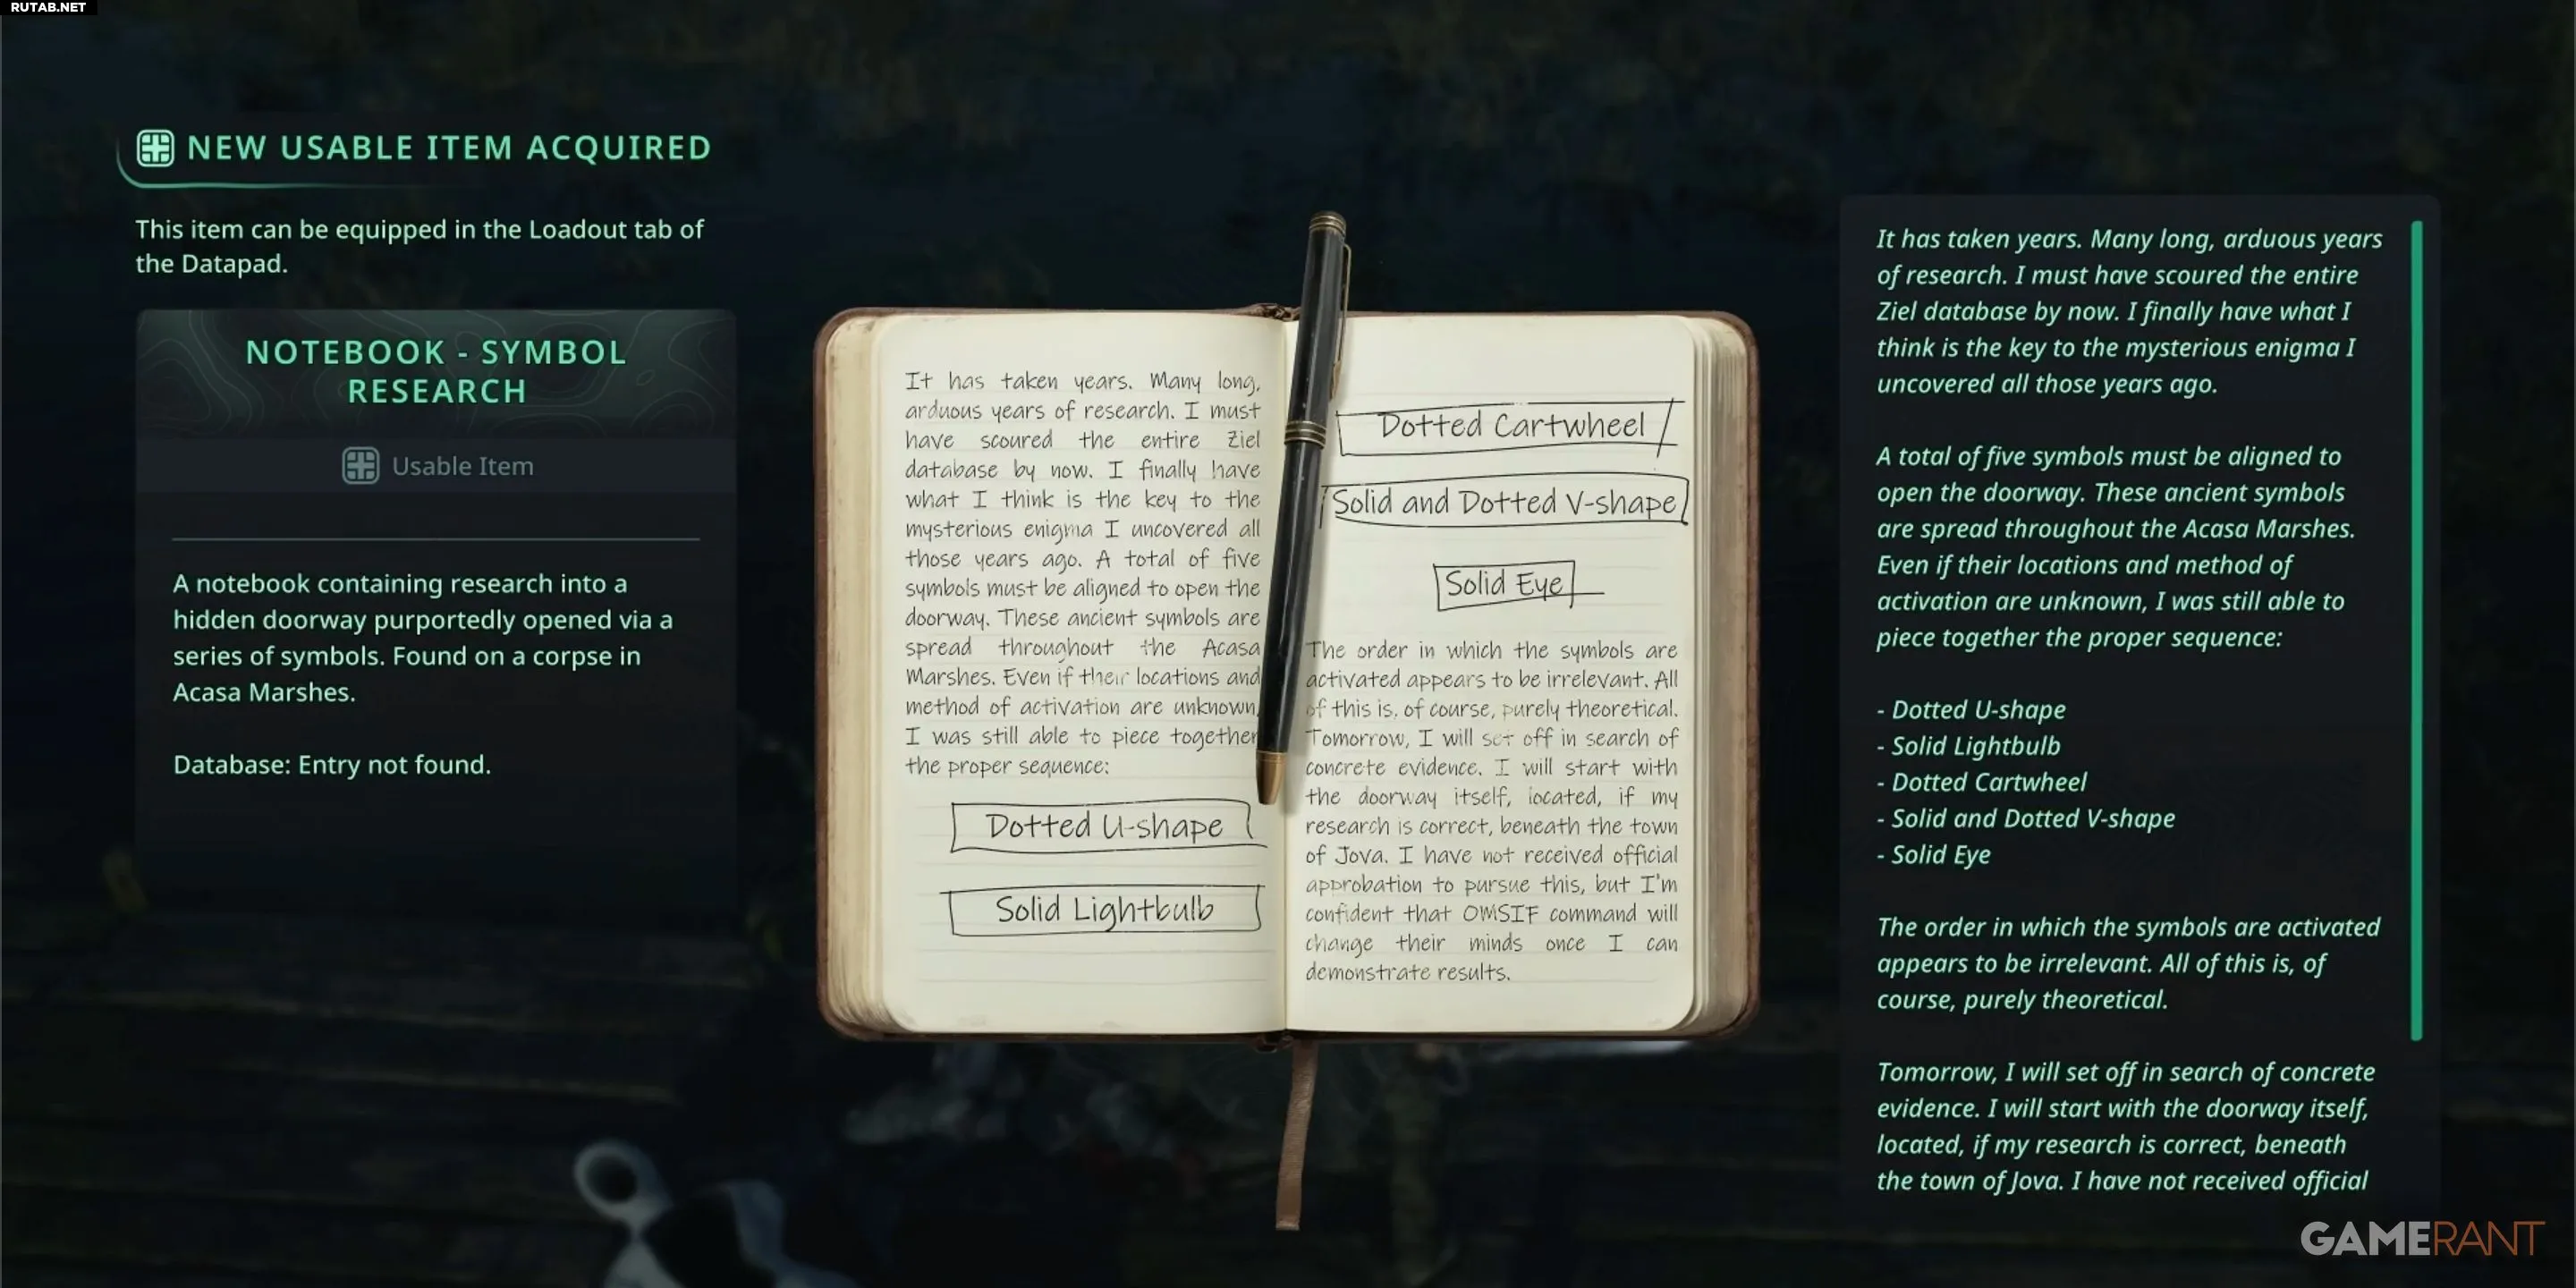 RUTAB.NET
NEW USABLE ITEM ACQUIRED
This item can be equipped in the Loadout tab of
the Datapad.
NOTEBOOK - SYMBOL
RESEARCH
Usable Item
A notebook containing research into a
hidden doorway purportedly opened via a
series of symbols. Found on a corpse in
Acasa Marshes.
Database: Entry not found.
It has taken years. Many long,
arduous years of research. I must
have scoured the entire Ziel
database by now. I finally have
what I think is the key to the
mysterious enigma I uncovered all
those years ago. A total of five
symbols must be aligned to open the
doorway. These ancient symbols are
spread throughout the Acasa
Marshes. Even if their locations and
method of activation are unknown,
I was still able to piece together
the proper sequence:
Dotted U-shape
Solid Lightbulb
Dotted Cartwheel
Solid and Dotted V-shape
Solid Eye
The order in which the symbols are
activated appears to be irrelevant. All
of this is, of course, purely theoretical.
Tomorrow, I will set off in search of
concrete evidence. I will start with
the doorway itself, located, if my
research is correct, beneath the town
of Jova. I have not received official
approbation to pursue this, but I'm
confident that OWSIF command will
change their minds once I can
demonstrate results.
It has taken years. Many long, arduous years
of research. I must have scoured the entire
Ziel database by now. I finally have what I
think is the key to the mysterious enigma I
uncovered all those years ago.
A total of five symbols must be aligned to
open the doorway. These ancient symbols
are spread throughout the Acasa Marshes.
Even if their locations and method of
activation are unknown, I was still able to
piece together the proper sequence:
- Dotted U-shape
- Solid Lightbulb
- Dotted Cartwheel
- Solid and Dotted V-shape
- Solid Eye
The order in which the symbols are activated
appears to be irrelevant. All of this is, of
course, purely theoretical.
Tomorrow, I will set off in search of concrete
evidence. I will start with the doorway itself,
located, if my research is correct, beneath
the town of Jova. I have not received official
GAMERANT